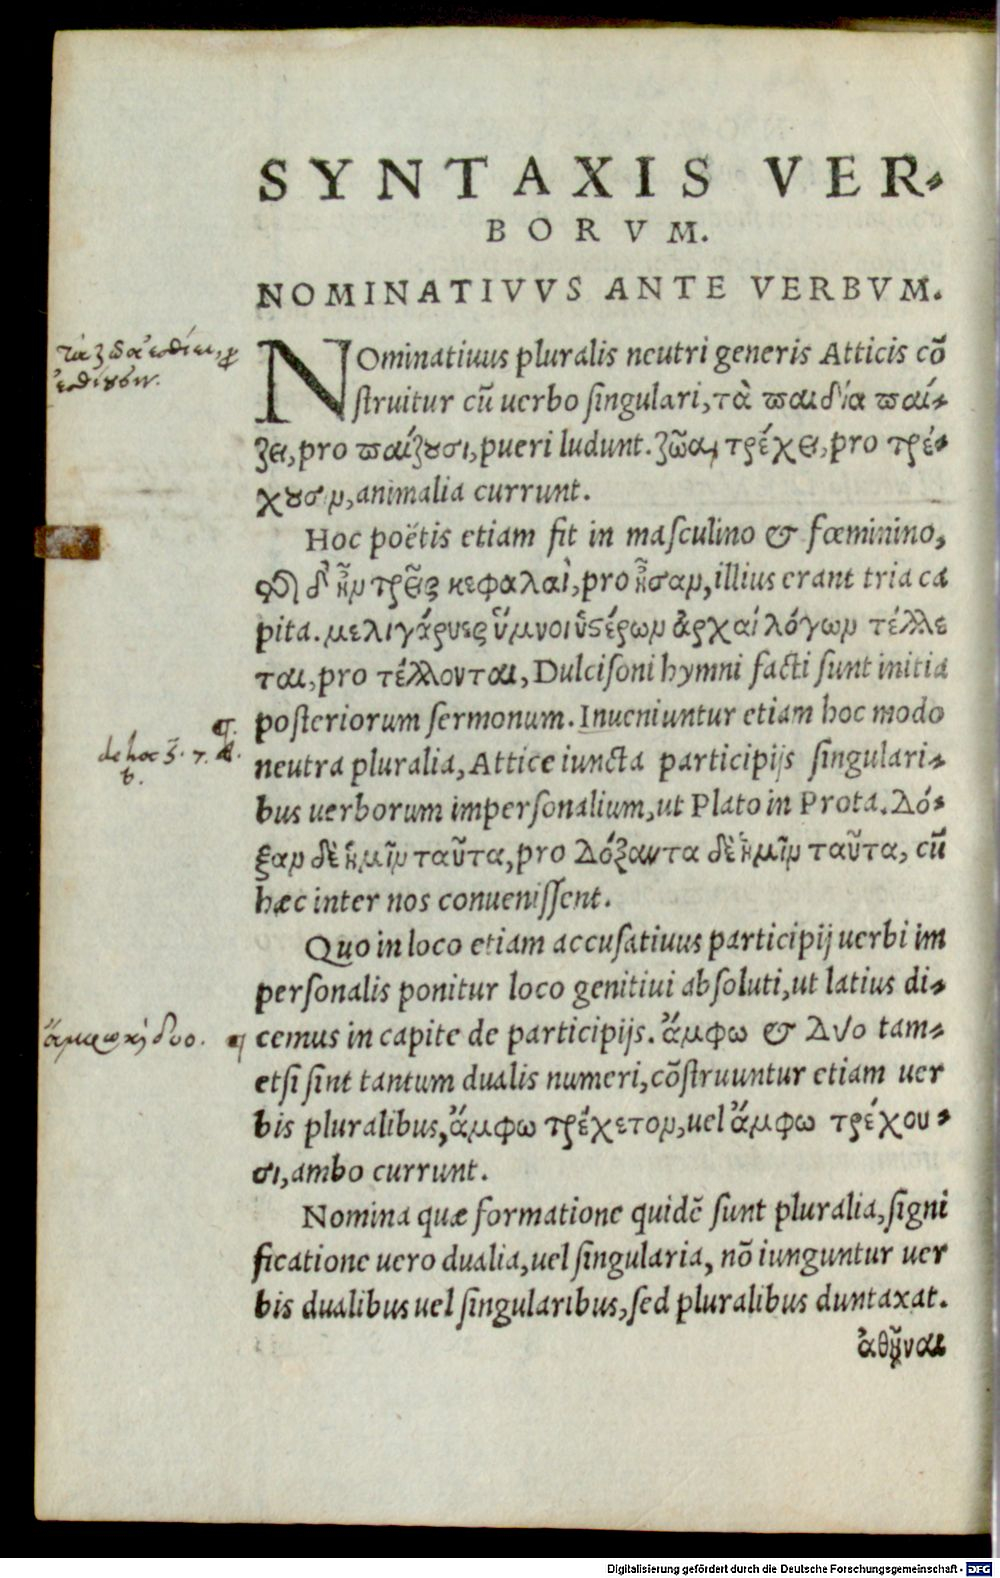 SYNTAXIS VER-
BORVM.
NOMINATIVVS ANTE VERBVM.
NOminatiuus pluralis neutri generis Atticis cõ
struitur cũ uerbo singulari, τὰ παιδία παί-
ζει, pro παίζουσι, pueri ludunt. ζῶα, τρέχει, pro τρέ-
χουσιν, animalia currunt.
Hoc poëtis etiam fit in masculino & fœminino,
τοῦ δ' ἦν τρεῖς κεφαλαὶ, pro ἦσαν, illius erant tria ca
pita. μελιγάρυες ὕμνοι ὑστέρων ἀρχαί λόγων τέλλε
ται, pro τέλλονται, Dulcisoni hymni facti sunt initia
posteriorum sermonum. Inueniuntur etiam hoc modo
neutra pluralia, Attice iuncta participijs singulari-
bus uerborum impersonalium, ut Plato in Prota. Δό-
ξαν δὲ ἡμῖν ταῦτα, pro Δόξαντα δὲ ἡμῖν ταῦτα, cũ
hæc inter nos conuenissent.
Quo in loco etiam accusatiuus participij uerbi im
personalis ponitur loco genitiui absoluti, ut latius di-
cemus in capite de participijs. ἄμφω & Δύο tam-
etsi sint tantum dualis numeri, cõstruuntur etiam uer
bis pluralibus, ἄμφω τρέχετον, uel ἄμφω τρέχου-
σι, ambo currunt.
Nomina quæ formatione quidẽ sunt pluralia, signi
ficatione uero dualia, uel singularia, nõ iunguntur uer
bis dualibus uel singularibus, sed pluralibus duntaxat.
ἀθῆναι
τὰ ζῶα ἐσθίει,
ἐσθίουσιν.
¶.
de hoc
b.
ἄμφω κὶ δυο. ¶
Digitalisierung gefördert durch die Deutsche Forschungsgemeinschaft - DFG